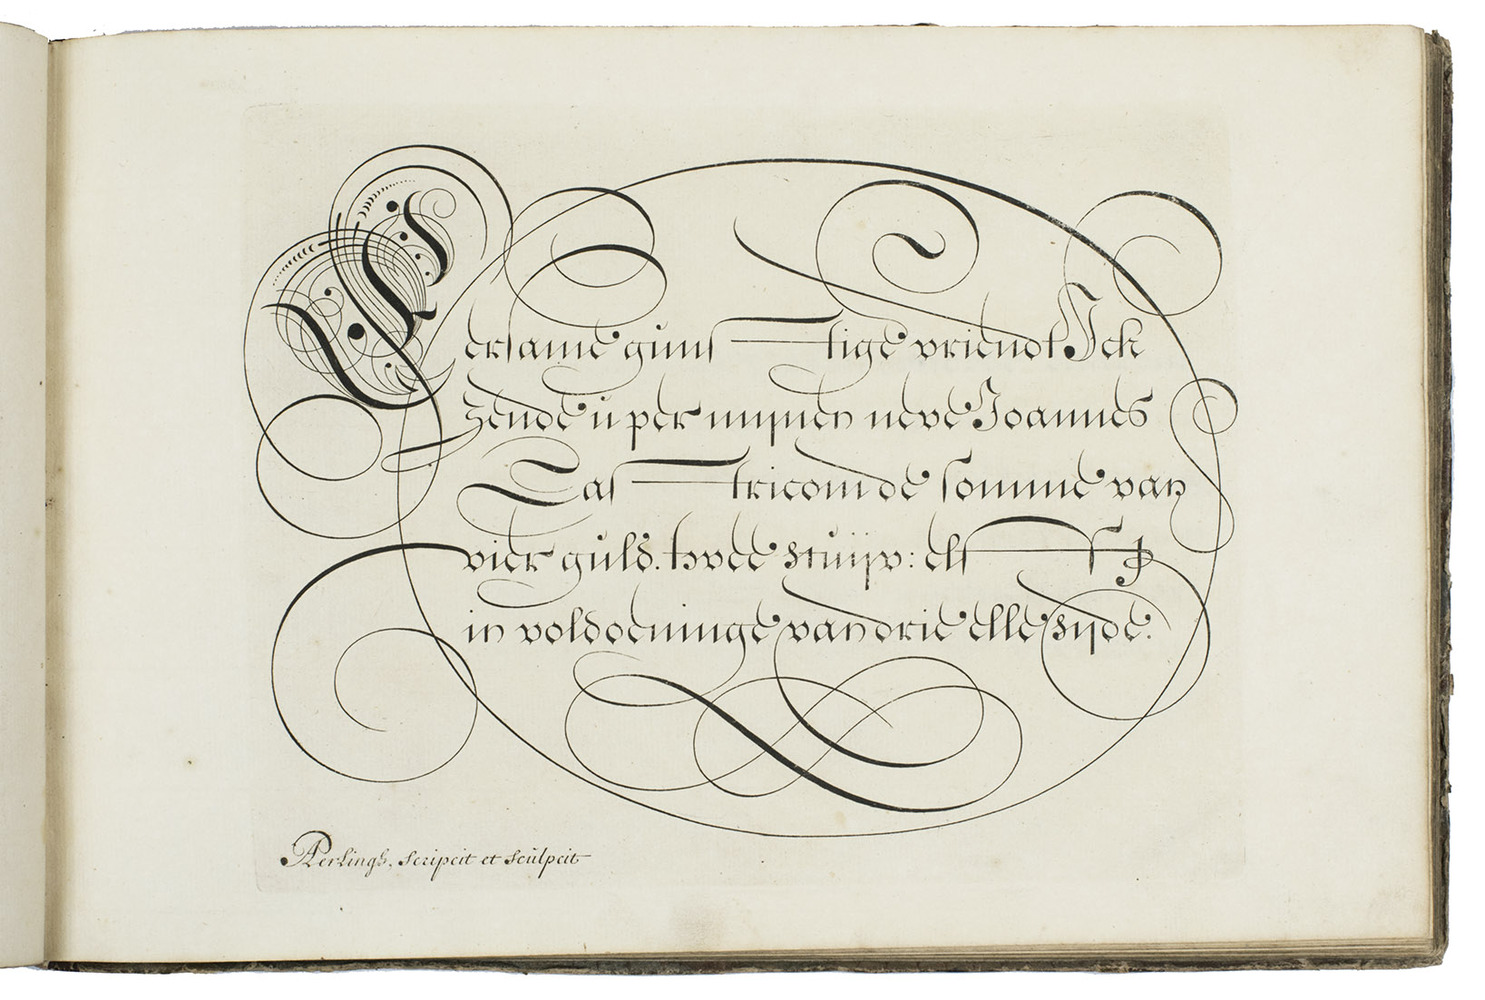 Eersame gunstige vriendt Ick
zende u per mijnen neve Joannes
Castricom de somme van
vier guld. twee stuijv: elf ₰
in voldoeninge van drie elle zijde.
APerlingh, scripcit et sculpcit